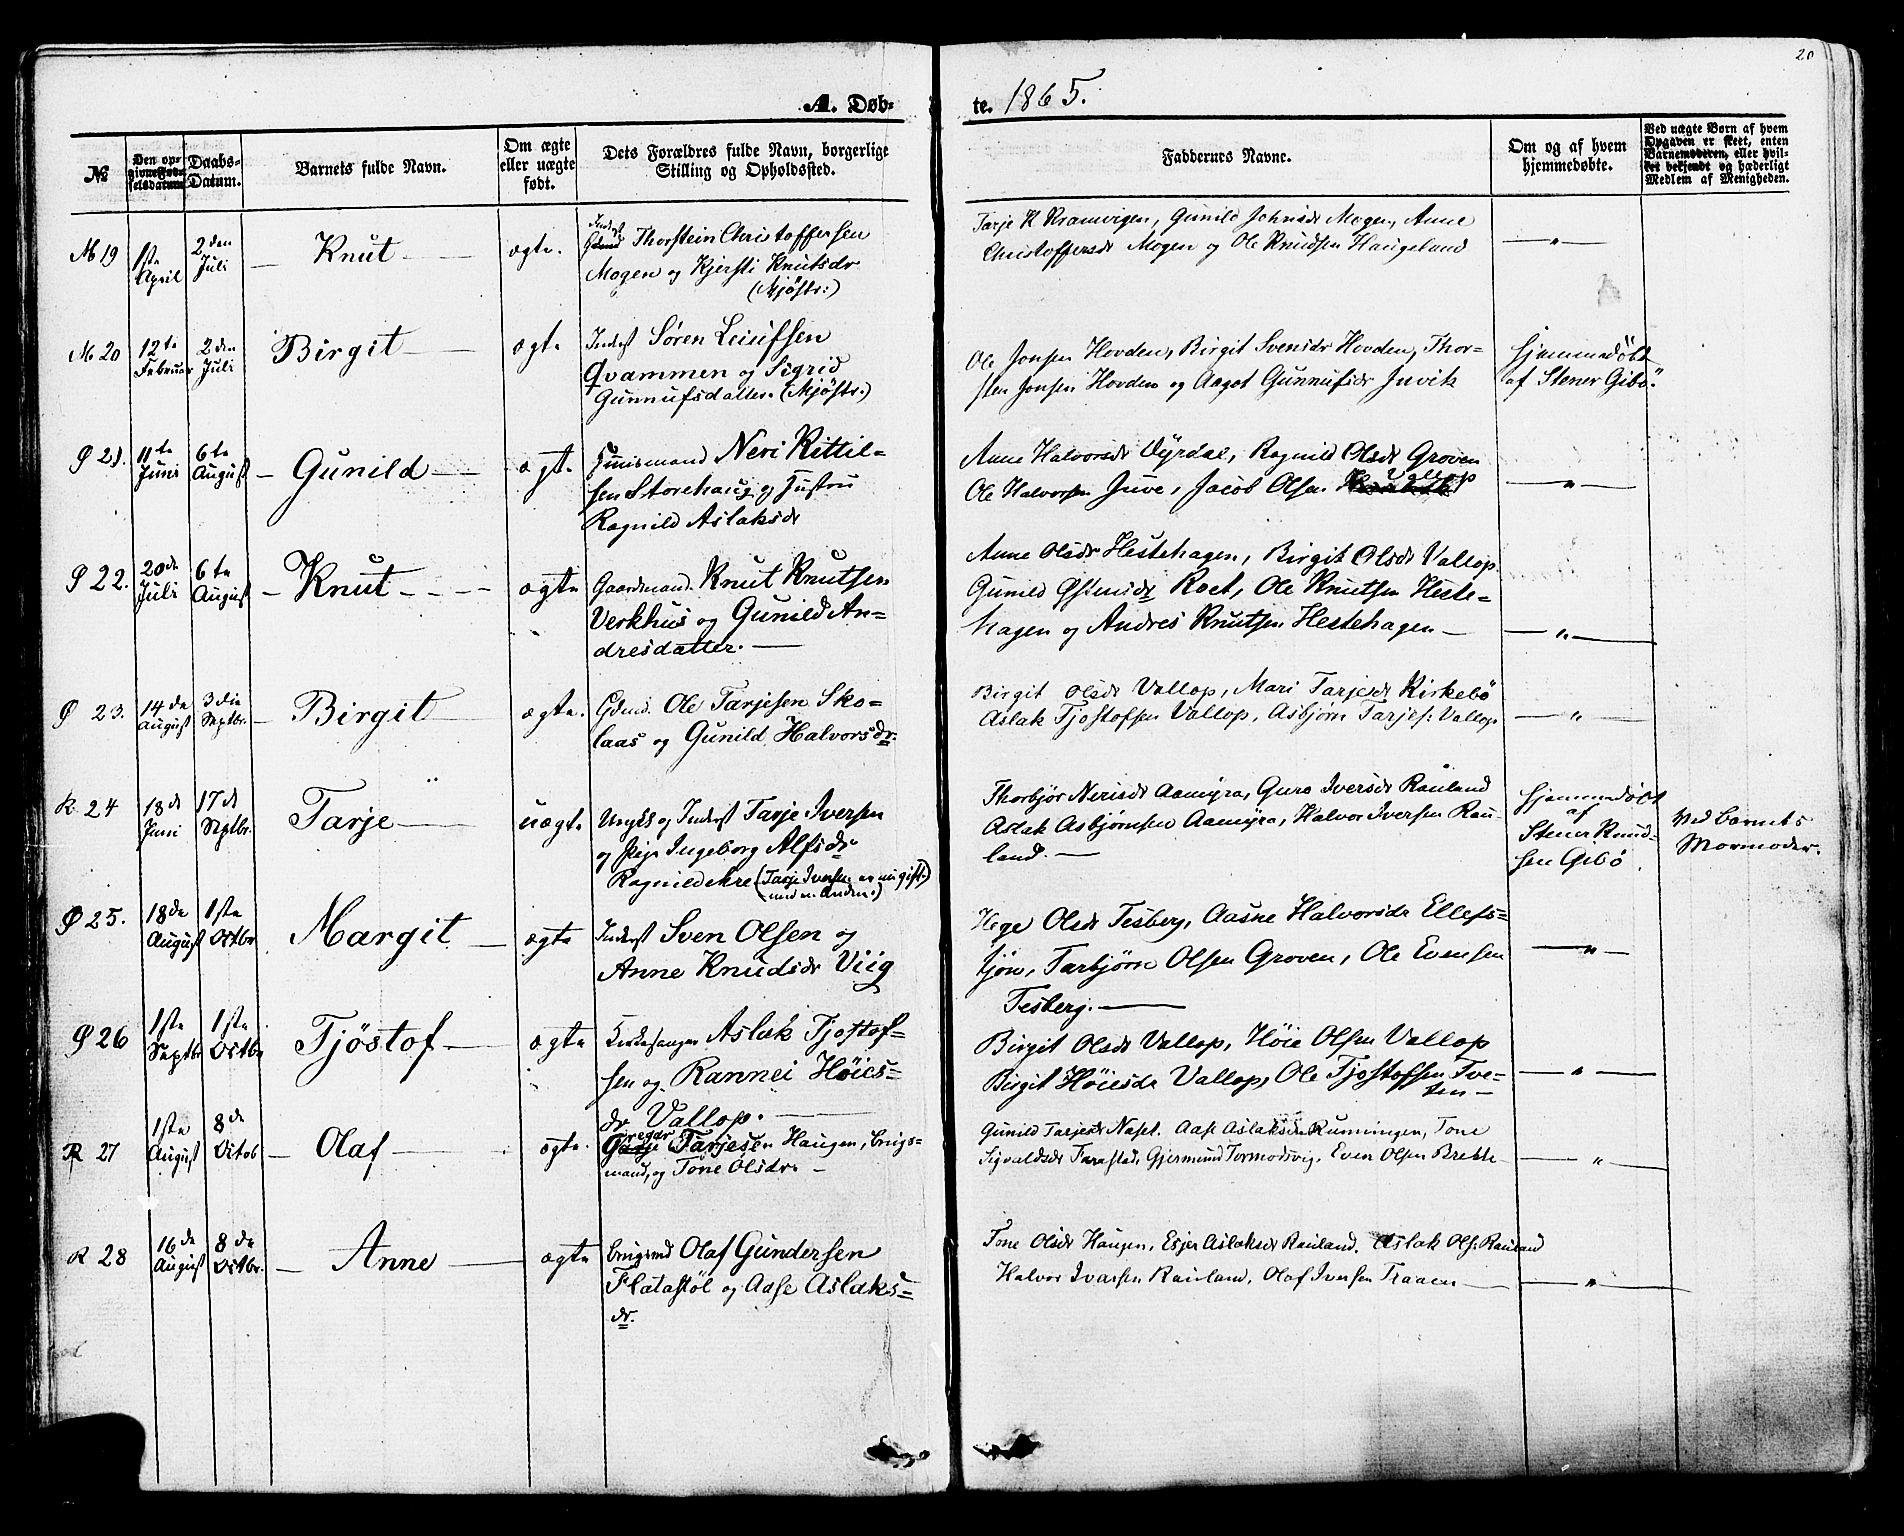 20
A. Døb-
te. 1865.
№
Den opgivne Fødselsdatum
Daabs-Datum.
Barnets fulde Navn.
Om ægte eller uægte født.
Dets Forældres fulde Navn, borgerlige Stilling og Opholdssted.
Faddernes Navne.
Om og af hvem hjemmedøbte.
Ved uægte Børn af hvem Opgaven er skeet, enten Barnemoderen, eller hvilket bekjendt og hæderligt Medlem af Menigheden.
M 19
1ste April
2den Juli
Knut
ægte.
Inderst Thorstein Christoffersen
Mogen og Kjersti Knutsdr
(Mjøstr:)
Tarje K Kramvigen, Gunild Johnsdr Mogen, Anne
Christoffersdr Mogen og Ole Knudsen Haugeland
— " —
M 20
12te Februar
2den Juli
Birgit
ægte
Inderst Søren Leiufsen
Qvammen og Sigrid
Gunnufsdatter. (Mjøstr.)
Ole Jonsen Hovden, Birgit Svensdr Hovden, Thor-
sten Jonsen Hovden og Aagot Gunnufsdr Juvik
Hjemmedöbt
af Stener Gibö.
Ø 21.
11te Juni
6te August
Gunild
ægte
Huusmand Neri Kittil-
sen Storehaug og Hustru
Ragnild Aslaksdr
Anne Halvorsdr Dyrdal, Ragnild Olsdr Groven
Ole Halvorsen Juve, Jacob Olsen Vallop
— " —
Ø 22.
20de Juli
6te August
Knut
ægte
Gaardmand Knut Knutsen
Verkhus og Gunild An-
dresdatter.
Anne Olsdr Hestehagen, Birgit Olsdr Vallop
Gunild Østensdr Roet, Ole Knutsen Heste-
hagen og Andres Knutsen Hestehagen
— " —
Ø 23.
14de August
3die Septbr.
Birgit
ægte.
Gdmd. Ole Tarjesen Sko-
laas og Gunild Halvorsdr.
Birgit Olsdr Vallop, Mari Tarjesdr Kirkebö
Aslak Tjostofsen Vallop, Asbjørn Tarjes: Vallop
— " —
R 24
18de Juni
17de Septbr.
Tarje
uægte
Ungk og Inderst Tarje Iversen
og Pige Ingeborg Alfsdr
Ragnildakre (Tarje Iversen er nu gift
med en Anden.)
Thorbjør Nerisdr Aamyra, Guro Iversdr Rauland
Aslak Asbjørnsen Aamyra, Halvor Iversen Rau-
land.
Hjemmedöbt
af
Stener Knud-
sen Gibö.
Ved Barnets
Mormoder.
Ø 25.
18de August
1ste Octbr
Margit
ægte
Inderst Sven Olsen og
Anne Knudsdr Viig
Hege Olsdr Tesberg, Aasne Halvorsdr Ellefs-
tjön, Tarbjörn Olsen Groven, Ole Evensen
Tesberg.
— " —
Ø 26
1ste Septbr
1ste Octbr
Tjöstof
ægte
Kirkesanger Aslak Tjostof-
sen og Rannei Höies-
dr Vallop.
Birgit Olsdr Vallop, Höie Olsen Vallop
Birgit Höiesdr Vallop, Ole Tjostofsen Tve-
ten
— " —
R 27
1ste August
8de Octob
Olaf
ægte.
Gregar Tarjesen Haugen, brugs-
mand, og Tone Olsdr.
Gunild Tarjesdr Napet. Aase Aslaksdr Runningen, Tone
Sigvaldsdr Farastad, Gjermund Tormodsvig, Even Olsen Brekke
— " —
R 28
16de August
8de Octbr.
Anne
ægte
brugsmd Olaf Gundersen
Flatastöl og Aase Aslaks-
dr.
Tone Olsdr Haugen, Espen Aslaksdr Rauland. Aslak Ols: Rauland
Halvor Ivarsen Rauland, Olaf Iversen Traaen
— " —